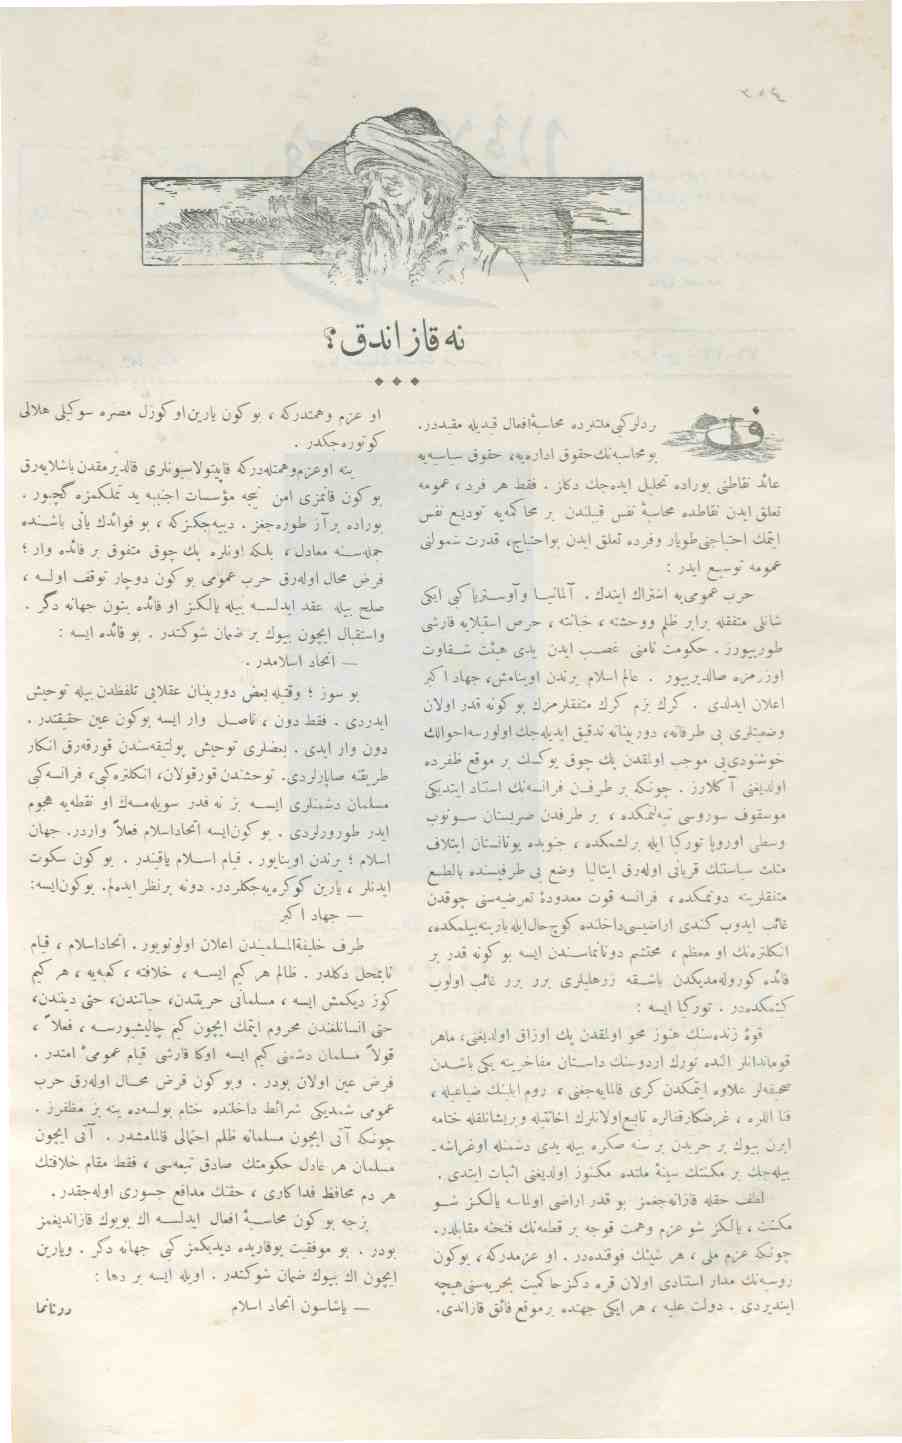 نه قازاندق؟
فردلر كبی ملتلرده محاسبۀ افعال قیدیله مقیددر.
بو محاسبه‌نك حقوق اداره‌یه، حقوق سیاسیه‌یه
عائد نقاطنی بوراده تحلیل ایده‌جك دكلز . فقط هر فرد ، عمومه
تعلق ایدن نقاطده محاسبۀ نفس قبیلندن بر محاكمه‌یه تودیع نفس
ایتمك احتیاجنی طویار وفرده تعلق ایدن بواحتیاج، قدرت شمولنی
عمومه توسیع ایدر :
حرب عمومی‌یه اشتراك ایتدك . آلمانیا وآوستریا كبی ایكی
شانلی متفقله برابر ظلم ووحشته ، خیانته ، حرص استیلایه قارشی
طورییورز . حكومت نامنی غصب ایدن یدی هیئت شقاوت
اوزرمزه صالدیرییور . عالم اسلام یرندن اوینامش، جهاد اكبر
اعلان ایدلدی . كرك بزم كرك متفقلرمزك بو كونه قدر اولان
وضعیتلری بی طرفانه، دوربینانه تدقیق ایدیله‌جك اولورسه‌احوالك
خوشنودی‌یی موجب اولمقدن پك چوق یوكسك بر موقع ظفرده
اولدیغنی آكلارز . چونكه بر طرفدن فرانسه‌نك استناد ایتدیكی
موسقوف سوروسی تپه‌لنمكده ، بر طرفدن صربستان سونوب
وسطی اوروپا توركیا ایله برلشمكده ، جنوبده یونانستان ایتلاف
مثلث سیاستنك قربانی اوله‌رق ایتالیا وضع بی طرفیسنده بالطبع
متفقلرینه دونمكده ، فرانسه قوت معدودۀ تعرضیه‌سنی چوقدن
غائب ایدوب كندی اراضیسی‌داخلنده كوج‌حال‌ایله بارینه‌بیلمكده،
انكلتره‌نك او معظم ، محتشم دونانماسندن ایسه بو كونه قدر بر
فائده كوروله‌مدیكدن باشقه زرهلیلری برر برر غائب اولوب
كیتمكده‌در . توركیا ایسه :
قوۀ زنده‌سنك هنوز محو اولمقدن پك اوزاق اولدیغنی، ماهر
قوماندانلر النده تورك اردوسنك داستان مفاخرینه یكی باشدن
صحیفه‌لر علاوه ایتمكدن كری قالمایه‌جغنی ، روم ایلینك ضیاعیله ،
فنا اللرده ، غرضكار فتالره تابع اولانلرك اخانتیله و پریشانلقله ختامه
ایرن بیوك بر حربدن بر سنه صكره بیله یدی دشمنله اوغراشه‌
بیله‌جك بر مكنتك سینۀ ملتده مكنوز اولدیغنی اثبات ایتدی .
لطف حقله قازانه‌جغمز بو قدر اراضی اولماسه یالكز شو
مكنت ، یالكز شو عزم وهمت قوجه بر قطعه‌نك فتحنه مقابلدر.
چونكه عزم ملی ، هر شیئك فوقنده‌در . او عزمدركه ، بوكون
روسیه‌نك مدار استنادی اولان قره دكز حاكمیت بحریه‌سنی هیچه
ایندیردی . دولت علیه ، هر ایكی جهتده بر موقع فائق قازاندی.
او عزم وهمتدركه ، بو كون یارین‌او كوزل مصره سوكیلی هلالی
كوتوره‌جكدر .
ینه اوعزم‌وهمتله‌دركه قاپیتولاسیونلری قالدیرمقدن باشلایه‌رق
بو كون قائمزی امن نیجه مؤسسات اجنبیه ید تملكمزه كچیور .
بوراده براز طوره‌جغز . دییه‌جكزكه ، بو فوائدك یانی باشنده
جمله‌سنه معادل ، بلكه اونلره پك چوق متفوق بر فائده وار ؛
فرض محال اوله‌رق حرب عمومی بو كون دوچار توقف اولسه ،
صلح بیله عقد ایدلسه بیله یالكز او فائده بتون جهانه دكر .
واستقبال ایچون بیوك بر ضمان شوكتدر . بو فائده ایسه :
— اتحاد اسلامدر .
بو سوز ؛ وقتیله بعض دوربینان عقلایی تلفظدن بیله توحیش
ایدردی . فقط دون ، ناصل وار ایسه بوكون عین حقیقتدر .
دون وار ایدی . بعضلری توحیش پولتیقه‌سندن قورقه‌رق انكار
طریقنه صاپارلردی. توحشدن قورقولان، انكلتره‌كبی، فرانسه‌كبی
مسلمان دشمنلری ایسه بز نه قدر سویله‌مسه‌ك او نقطه‌یه هجوم
ایدر طورورلردی . بوكون‌ایسه اتحاداسلام فعلاً واردر. جهان
اسلام ؛ یرندن اوینایور. قیام اسلام یاقیندر . بوكون سكوت
ایدنلر ، یارین كوكره‌یه‌جكلردر. دونه برنظر ایده‌لم. بوكون‌ایسه:
— جهاد اكبر
طرف خلیفة‌المسلمیندن اعلان اولونویور. اتحاداسلام ، قیام
نابمحل دكلدر. ظالم هر كیم ایسه ، خلافته ، كعبه‌یه ، هر كیم
كوز دیكمش ایسه ، مسلمانی حریتندن، حیاتندن، حتی دیندن،
حتی انسانلغندن محروم ایتمك ایچون كیم چالیشیورسه ، فعلاً ،
قولاً مسلمان دشمنی كیم ایسه اوكا قارشی قیام عمومیٔ امتدر .
فرض عین اولان بودر . وبو كون فرض محال اوله‌رق حرب
عمومی شمدیكی شرائط داخلنده ختام بولسه‌ده ینه بز مظفرز .
چونكه آتی ایچون مسلمانه ظلم احتمالی قالمامشدر . آتی ایچون
مسلمان هر عادل حكومتك صادق تبعه‌سی ، فقط مقام خلافتك
هر دم محافظ فداكاری ، حقك مدافع جسوری اوله‌جقدر.
بزجه بو كون محاسبۀ افعال ایدلسه اك بویوك قازاندیغمز
بودر . بو موفقیت یوقاریده دیدیكمز كبی جهانه دكر . ویارین
ایچون اك بیوك ضمان شوكتدر . اویله ایسه بر دها :
— یاشاسون اتحاد اسلام